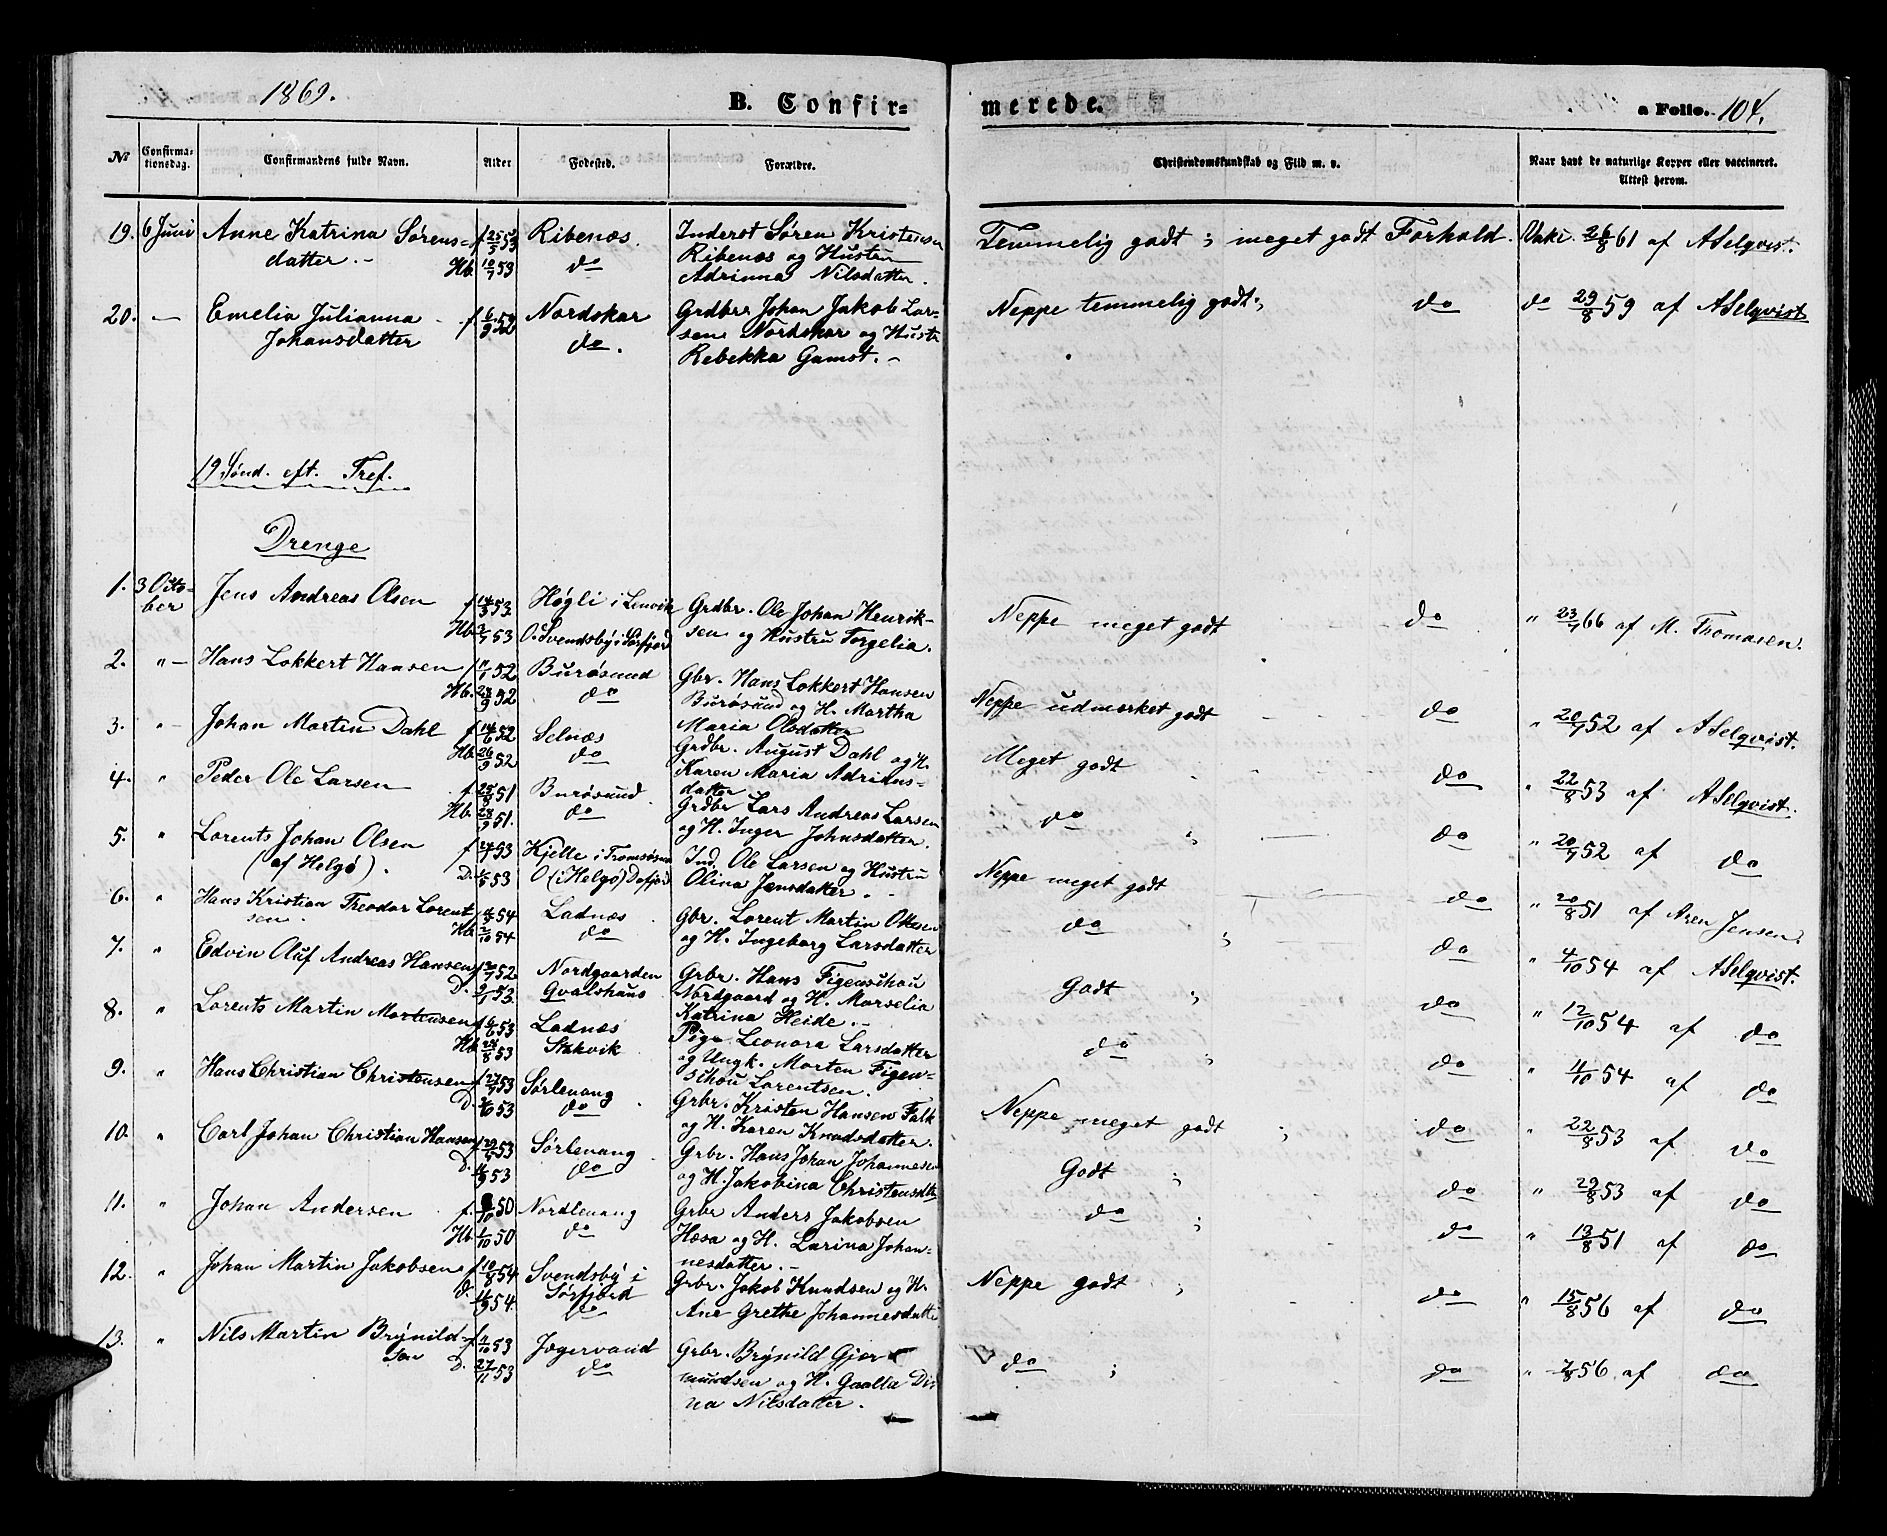 1869.
B. Confir-
merede.
a Folio. 104.
No
Confirma-
tionsdag.
Confirmandens fulde Navn.
Alder
Fødested.
Forældre.
Christendomskundskab og Flid m. v.
Naar havt de naturlige Kopper eller vaccineret.
Attest herom.
19. 6 Juni Anne Katrina Sørens- f 25/5 53 Ribenæs. Inderst Søren Kristensen Temmelig godt ; meget godt Forhold. Vaki. 26/8 61 af A Selqvist.
datter. - Hb. 10/7 53 do Ribenæs og Hustru
Adrinna Nilsdatter.
20. — Emelia Julianna f 6/9 52 Nordskar Grdbr. Johan Jakob Lar- Neppe temmelig godt; do do 29/8 59 af A Selqvist
Johansdatter do. sen Nordskar og Hustr
Rebekka Gamst. -
19 Sønd. eft. Tref.
Drenge
1. 3 Octo- Jens Andreas Olsen f 14/3 53. Høgli i Lenvik Grdbr. Ole Johan Henrik- Neppe meget godt do " 23/7 66 af M. Thomasen.
ber Hb. 53 O. Svendsby i Sørfjord sen og Hustru Torgelia.
2. " Hans Lokkert Hansen f 52 Burøsund Gbr. Hans Lokkert Hansen Neppe udmærket godt do " 20/7 52 af A Selqvist.
Hb. 52 do Burøsund og H. Martha
Maria Olsdatter
3. " Johan Martin Dahl f 14/6 52 Selnæs Grdbr. August Dahl og H. Meget godt do " 22/8 53 af A Selqvist.
Hb. 26/9 52 do Karen Maria Adrians-
datter
4. " Peder Ole Larsen f 51 Burøsund Grdbr Lars Andreas Larsen do ; do " 20/7 52 af do
Hb. 51. do og H. Inger Johnsdatter.
5. " Lorents Johan Olsen f 53 Kjelle i Tromsøsund Ind. Ole Larsen og Hustru Neppe meget godt do " 20/8 51 af Aren Jensen.
(af Helgø). D. 53 O (i Helgø) Dafjord Olina Jensdatter. -
6. " Hans Kristian Theodor Lorent f 54 Ladnæs Gbr. Lorent Martin Olsen do ; do " 4/10 54 af A Selqvist.
sen. Hb 54 do og H. Ingeborg Larsdatter
7. " Edvin Oluf Andreas Hansen f 52 Nordgaarden Grbr. Hans Figenschou Godt ; do " 12/10 54 af do
D. 53. Qvalshaus Nordgaard og H. Marselia
Katrina Heide. -
8. " Lorents Martin Mortensen f 53 Ladnæs Pige Leonora Larsdatter do ; do " 4/10 54 af do
Hb. 53 Stakvik og Ungk. Morten Figen-
schou Lorentsen.
9. " Hans Christian Christensen f 27/7 53 Sørlenang Grbr. Kristen Hansen Falk Neppe meget godt ; do " 22/8 53 af do
D. 53 do og H. Karen Knudsdatter.
10. " Carl Johan Christian Hansen f 53 Sørlenang Grbr. Hans Johan Johannesen Godt ; do " 29/8 53 af do
D. 53 do og H. Jakobina Christensdttr
11. " Johan Andersen f. 50 Nordlenang Grbr Anders Jakobsen do ; do " 13/8 51 af do
Hb 50 do Hæsa og H. Larina Johan-
nesdatter. -
12. " Johan Martin Jakobsen f 10/8 54 Svendsby i Grbr. Jakob Knudsen og H. Neppe godt ; do " 15/8 56 af do
D. 54. Sørfjord Ane Grethe Johannesdattr
do
13. " Nils Martin Brynild- f 53 Jægervand Grbr. Brynild Gjer- do ; do " 56 af do
sen D. 27/11 53 do mundsen og H. Gaalla Di-
na Nilsdatter.